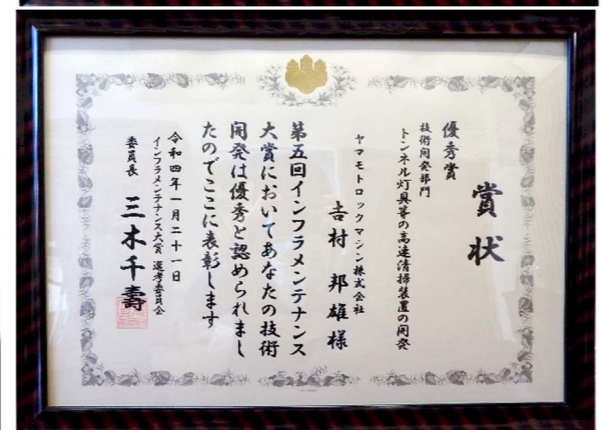 賞状
優秀賞
技術開発部門
トンネル灯具等の高速清掃装置の開発
ヤマモトロックマシン株式会社
吉村 邦雄様
第五回インフラメンテナンス
大賞においてあなたの技術
開発は優秀と認められまし
たのでここに表彰します
令和四年一月二十一日
インフラメンテナンス大賞 選考委員会
委員長 三木千壽